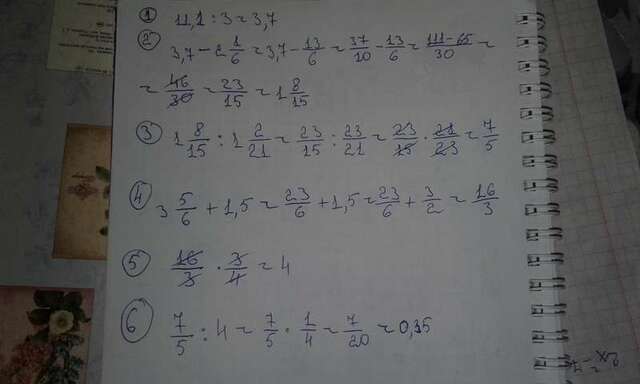 ① 11,1 : 3 = 3,7
② 3,7 - 2 1/6 = 3,7 - 13/6 = 37/10 - 13/6 = 111-65/30 =
= 46/30 = 23/15 = 1 8/15
③ 1 8/15 : 1 2/21 = 23/15 : 23/21 = 23/15 · 21/23 = 7/5
④ 3 5/6 + 1,5 = 23/6 + 1,5 = 23/6 + 3/2 = 16/3
⑤ 16/3 · 3/4 = 4
⑥ 7/5 : 4 = 7/5 · 1/4 = 7/20 = 0,35